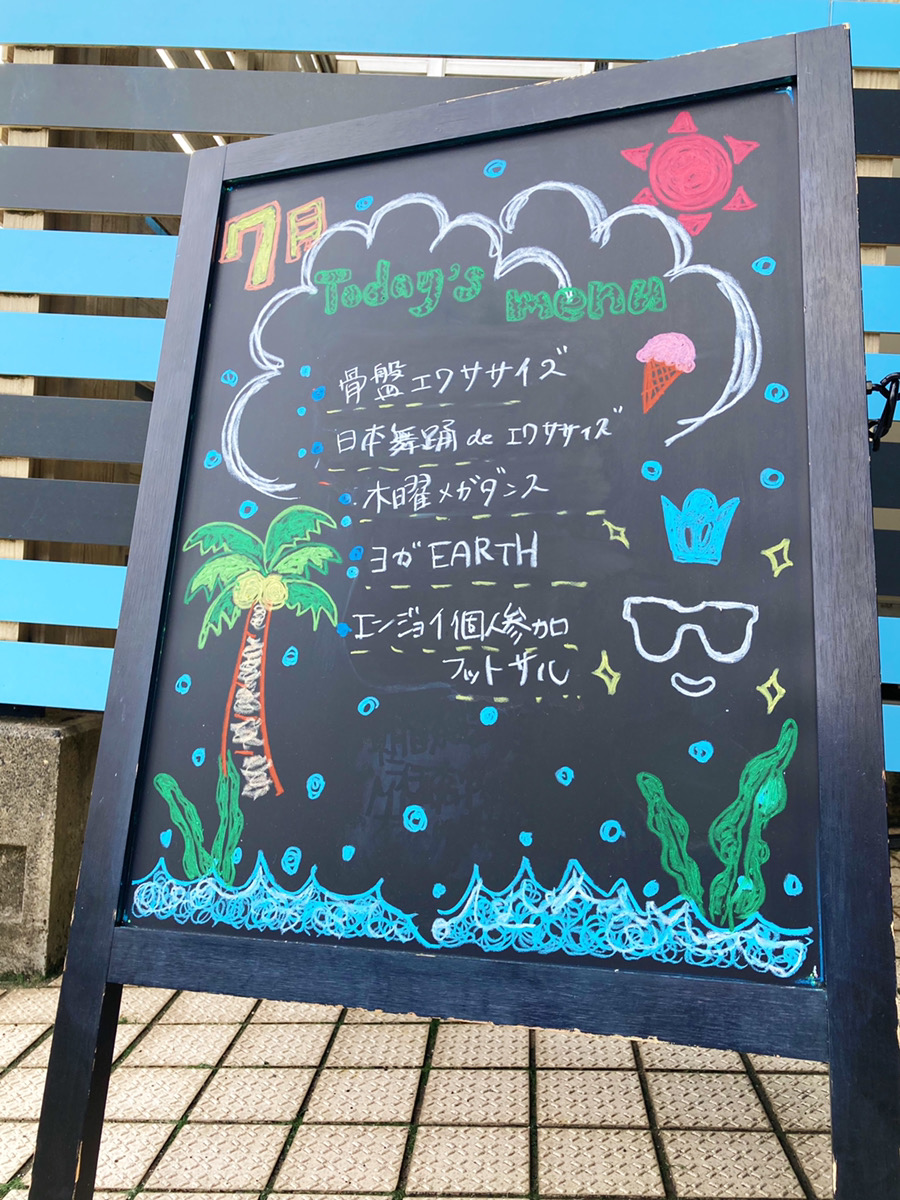 7月
Today's menu
骨盤エクササイズ
日本舞踊 de エクササイズ
木曜メガダンス
ヨガ EARTH
エンジョイ個人参加
フットサル